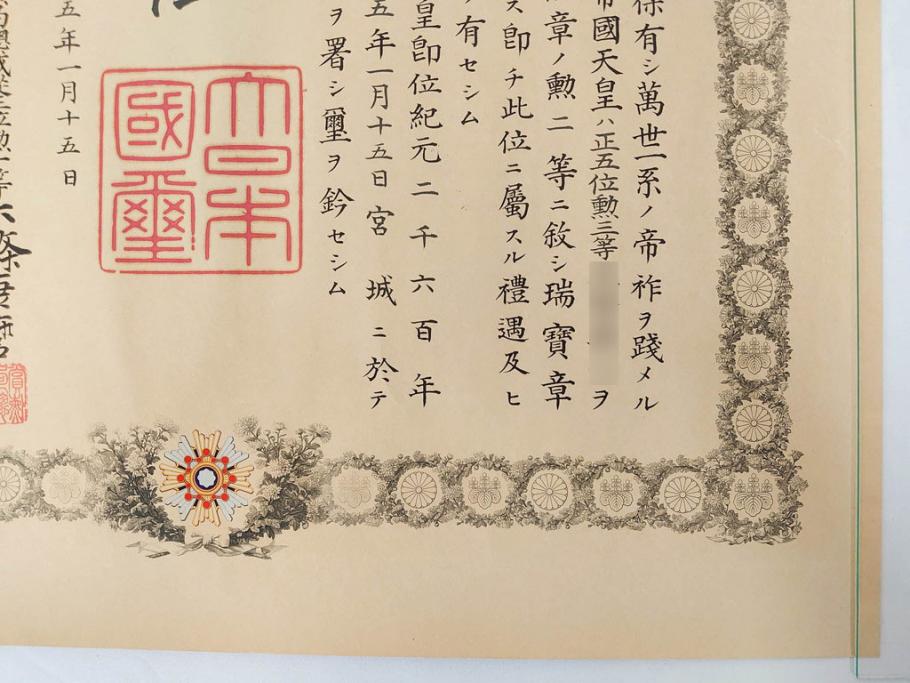 保有シ萬世一系ノ帝祚ヲ踐メル
帝國天皇ハ正五位勳三等 ヲ
章ノ勳二等ニ敍シ瑞寶章
ス卽チ此位ニ屬スル禮遇及ヒ
有セシム
皇卽位紀元二千六百年
五年一月十五日宮城ニ於テ
ヲ署シ璽ヲ鈐セシム
大日本
國璽
五年一月十五日